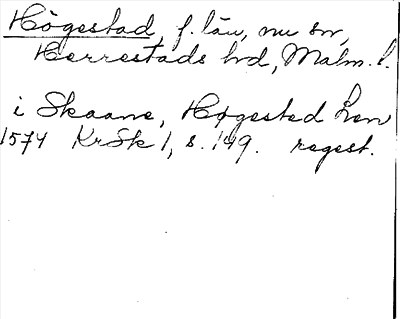 Högestad, f. län, nu sn,
Herrestads hrd, Malm. l.
i Skaane, Høgested Len
1574 KrSk 1, s. 149. regest.